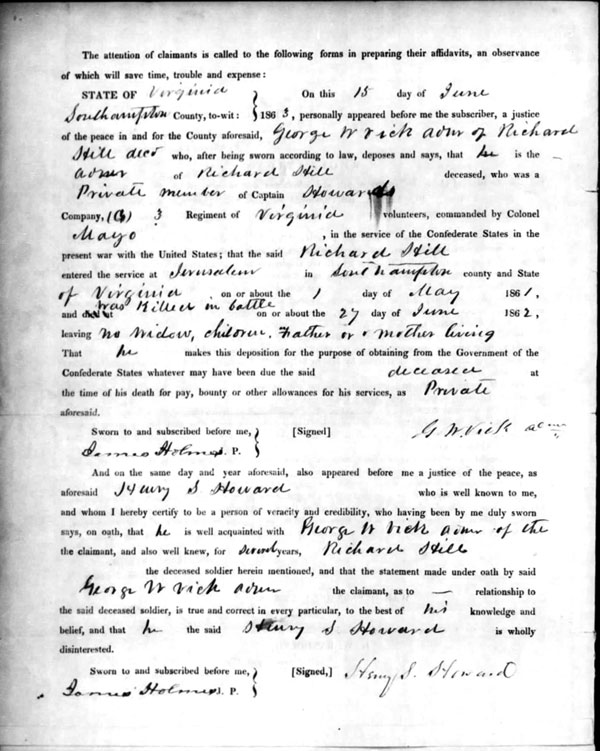 The attention of claimants is called to the following forms in preparing their affidavits, an observance
of which will save time, trouble and expense:
STATE OF Virginia } On this 15 day of June
Southampton County, to-wit: } 1863, personally appeared before me the subscriber, a justice
of the peace in and for the County aforesaid, George W Vick admr of Richard
Hill decd who, after being sworn according to law, deposes and says, that he is the
admr of Richard Hill deceased, who was a
Private member of Captain Howards
Company, (G) 3 Regiment of Virginia volunteers, commanded by Colonel
Mayo , in the service of the Confederate States in the
present war with the United States; that the said Richard Hill
entered the service at Jerusalem in Southampton county and State
of Virginia , on or about the 1 day of May 1861,
and was killed in battle on or about the 27 day of June 1862,
leaving no widow, children, Father or mother living
That he makes this deposition for the purpose of obtaining from the Government of the
Confederate States whatever may have been due the said deceased at
the time of his death for pay, bounty or other allowances for his services, as Private
aforesaid.
Sworn to and subscribed before me, } [Signed] G. W. Vick admr
James Holmes J. P. }
And on the same day and year aforesaid, also appeared before me a justice of the peace, as
aforesaid Henry S. Howard who is well known to me,
and whom I hereby certify to be a person of veracity and credibility, who having been by me duly sworn
says, on oath, that he is well acquainted with George W Vick admr of the
the claimant, and also well knew, for several years, Richard Hill
the deceased soldier herein mentioned, and that the statement made under oath by said
George W Vick admr the claimant, as to — relationship to
the said deceased soldier, is true and correct in every particular, to the best of his knowledge and
belief, and that he the said Henry S. Howard is wholly
disinterested.
Sworn to and subscribed before me, } [Signed,] Henry S. Howard
James Holmes J. P. }